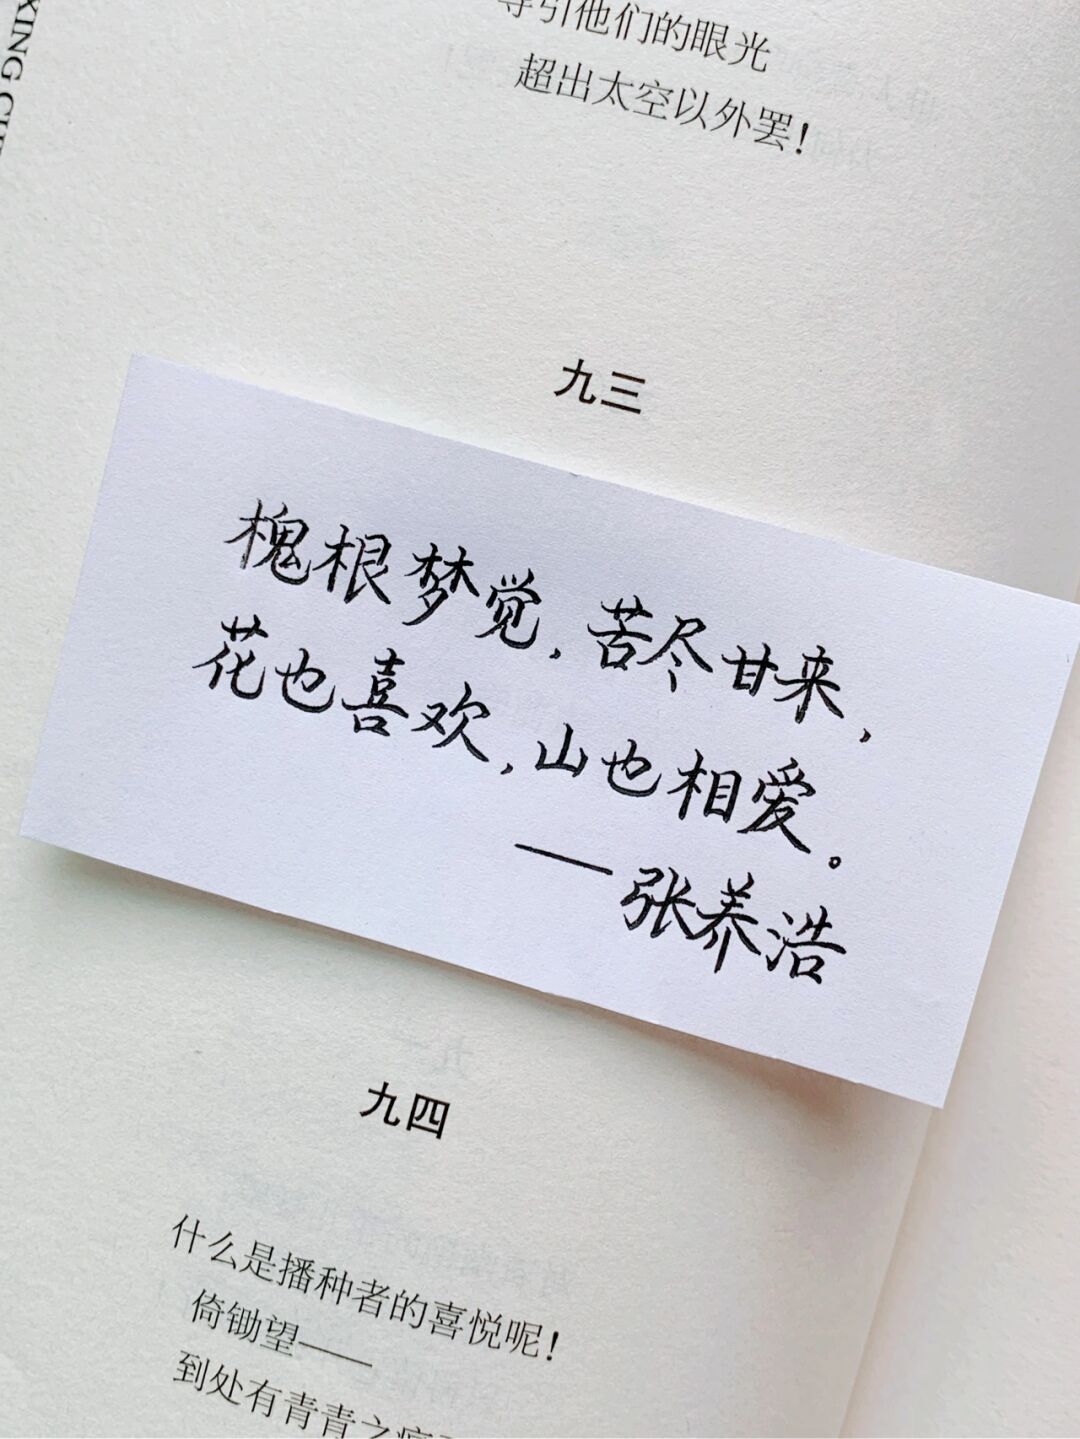 导引他们的眼光
超出太空以外罢！
九三
槐根梦觉，苦尽甘来，
花也喜欢，山也相爱。
——张养浩
九四
什么是播种者的喜悦呢！
倚锄望——
到处有青青之痕